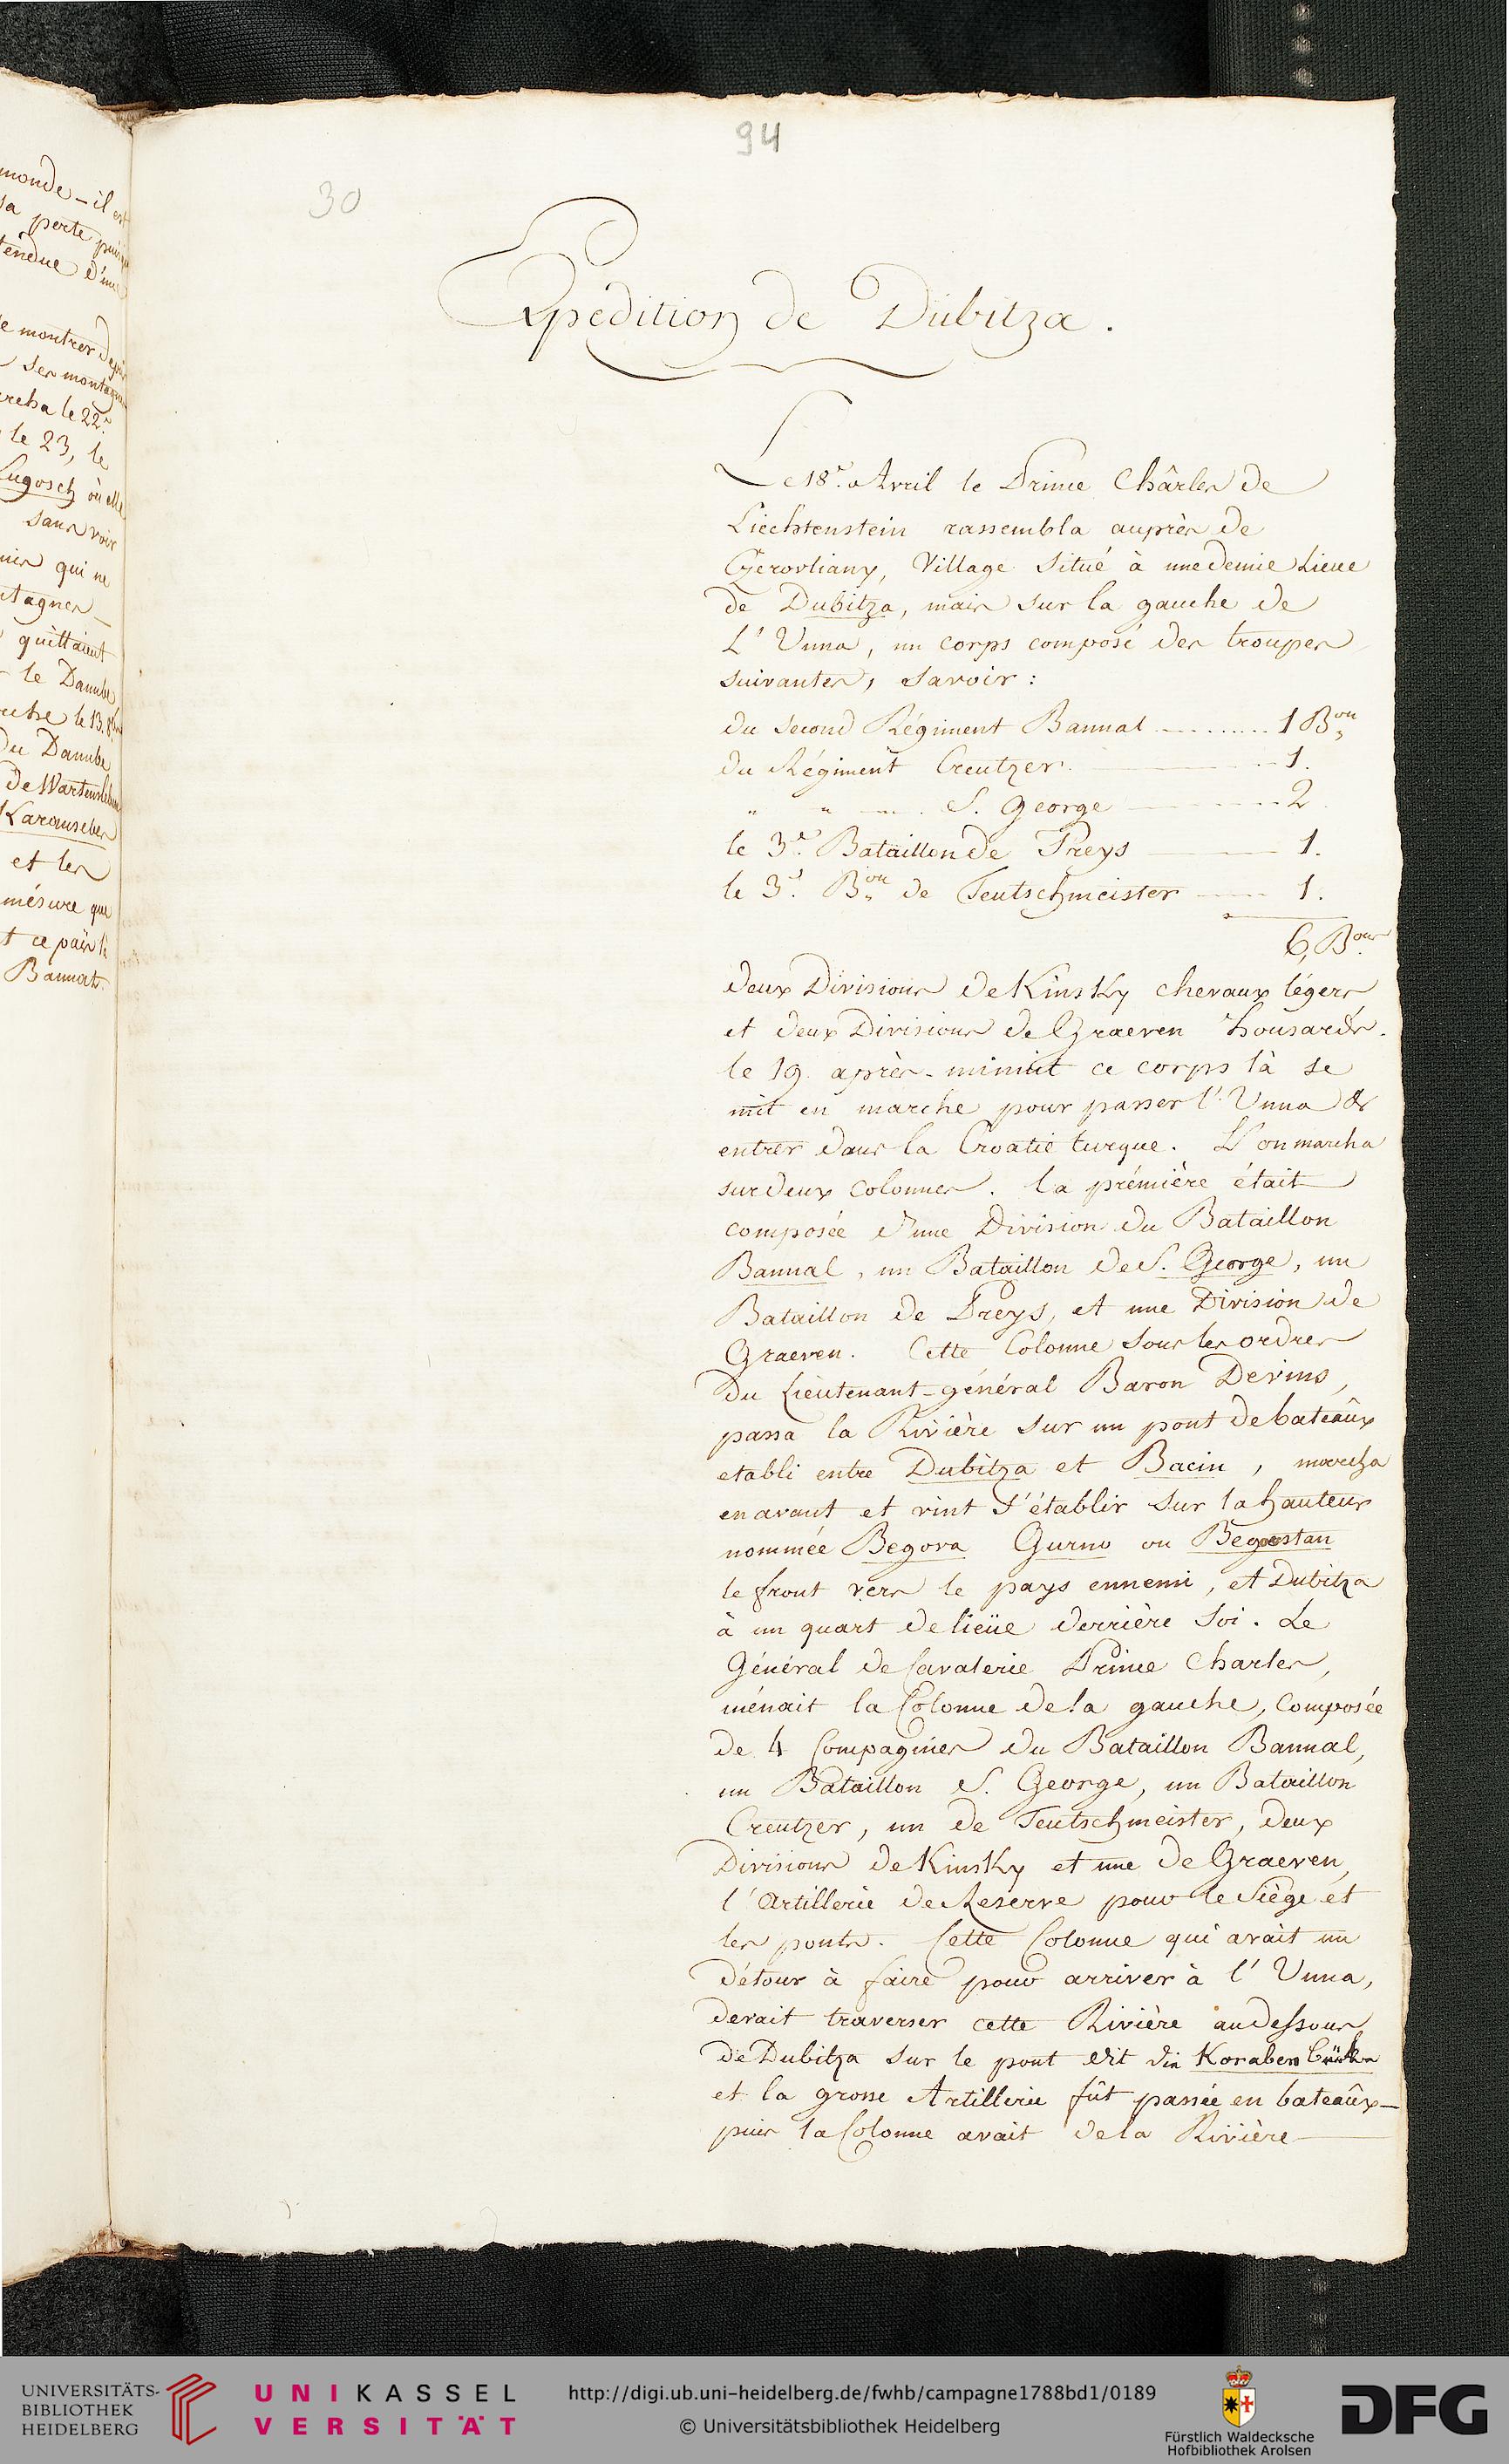 monde _ il est
sa perte
tendue d'une
se montrer
ses montagnes
le 22.
le 23, le
Lugosch où elle
sans voir
qui ne
quittaient
le Danube
le 13.
du Danube
de Wartensleben
Karansebes
et les
mésure que
t ce païs là
Bannat.
94
30
Expedition de Dubitza.
Le 18.e Avril le Prince Chârles de
Liechtenstein rassembla auprès de
Gerovliany, Village situé à une demie Lieue
de Dubitza, mais sur la gauche de
L'Unna, un corps composé des troupes
suivantes, savoir :
du second Régiment Bannal ......... 1 Bon
du Régiment Creutzer. ——— 1.
" " — . S. George ——— 2.
le 3.e Bataillon de Preys ——— 1.
le 3.e Bon de Teutschmeister —— 1.
6, Bons
deux Divisions de Kinsky chevaux légers
et deux Divisions de Graeven housards.
le 19. après-minuit ce corps là se
mit en marche pour passer l'Unna &
entrer dans la Croatie turque. L'on marcha
sur deux colonnes. la prémière était
composée d'une Division du Bataillon
Bannal, un Bataillon de S. George, un
Bataillon de Preys, et une Division de
Graeven. Cette Colonne sous les ordres
du Lieutenant-général Baron Devins,
passa la Rivière sur un pont de bateaûx
etabli entre Dubitza et Bacin, marcha
en avant et vint s'établir sur la hauteur
nommée Begova Gurno ou Begostan
le front vers le pays ennemi, et Dubitza
à un quart de lieüe derrière soi. Le
Général de Cavalerie Prince Charles,
ménait la Colonne de la gauche, composée
de 4 Compagnies du Bataillon Bannal,
un Bataillon S. George, un Bataillon
Creutzer, un de Teutschmeister, deux
Divisions de Kinsky et une de Graeven,
l'Artillerie de Reserve pour le Siège et
les ponts. Cette Colonne qui avait un
détour à faire pour arriver à l'Unna,
devait traverser cette Rivière au dessous
de Dubitza sur le pont dit die Koraben brücke
et la grosse Artillerie fût passée en bateaûx —
puis la Colonne avait de la Rivière
UNIVERSITÄTS-
BIBLIOTHEK
HEIDELBERG
UNIKASSEL
VERSITÄT
http://digi.ub.uni-heidelberg.de/fwhb/campagne1788bd1/0189
© Universitätsbibliothek Heidelberg
Fürstlich Waldecksche
Hofbibliothek Arolsen
DFG